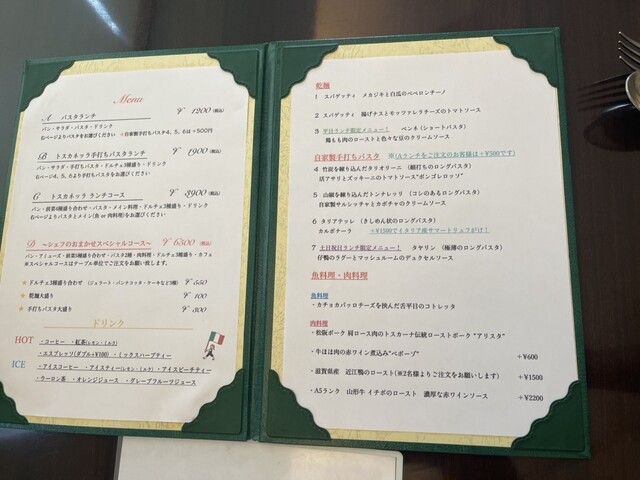 Menu
A パスタランチ ¥ 1200 (税込)
パン・サラダ・パスタ・ドリンク
右ページよりパスタをお選びください ★自家製手打ちパスタ4、5、6は+500円
B トスカネッラ手打ちパスタランチ ¥ 1900 (税込)
パン・サラダ・手打ちパスタ・ドルチェ3種盛り・ドリンク
右ページ4、5、6、7から手打ちパスタをお選びください
C トスカネッラ ランチコース ¥ 3900 (税込)
パン・前菜4種盛り合わせ・パスタ・メイン料理・ドルチェ3種盛り・ドリンク
右ページよりパスタとメイン(魚 or 肉料理)をお選びください
D ~シェフのおまかせスペシャルコース~ ¥ 6500 (税込)
パン・アミューズ・前菜5種盛り合わせ・パスタ2種・肉料理・ドルチェ3種盛り・カフェ
※スペシャルコースはテーブル単位でご注文をお願い致します。
★ ドルチェ3種盛り合わせ (ジェラート・パンナコッタ・ケーキなど3種) ¥ 550
★ 乾麺大盛り ¥ 100
★ 手打ちパスタ大盛り ¥ 300
ドリンク
HOT ・コーヒー ・紅茶(レモン・ミルク)
・エスプレッソ(ダブル+¥100) ・ミックスハーブティー
ICE ・アイスコーヒー ・アイスティー(レモン・ミルク) ・アイスピーチティー
・ウーロン茶 ・オレンジジュース ・グレープフルーツジュース
乾麺
1 スパゲッティ メカジキと白瓜のペペロンチーノ
2 スパゲッティ 揚げナスとモッツァレラチーズのトマトソース
3 平日ランチ限定メニュー! ペンネ(ショートパスタ)
鶏もも肉のローストと色々な豆のクリームソース
自家製手打ちパスタ ※(Aランチをご注文のお客様は+¥500です)
4 竹炭を練り込んだタリオリーニ (細打ちのロングパスタ)
活アサリとズッキーニのトマトソース"ボンゴレロッソ"
5 山椒を練り込んだトンナレッリ (コシのあるロングパスタ)
自家製サルシッチャとカボチャのクリームソース
6 タリアテッレ (きしめん状のロングパスタ)
カルボナーラ ※+¥1500でイタリア産サマートリュフがけ!
7 土日祝日ランチ限定メニュー! タヤリン (極薄のロングパスタ)
仔鴨のラグーとマッシュルームのデュクセルソース
魚料理・肉料理
魚料理
・カチョカバッロチーズを挟んだ舌平目のコトレッタ
肉料理
・松阪ポーク 肩ロース肉のトスカーナ伝統ローストポーク "アリスタ"
・牛ほほ肉の赤ワイン煮込み"ペポーゾ" +¥600
・滋賀県産 近江鴨のロースト(※2名様よりご注文をお願いします) +¥1500
・A5ランク 山形牛 イチボのロースト 濃厚な赤ワインソース +¥2200